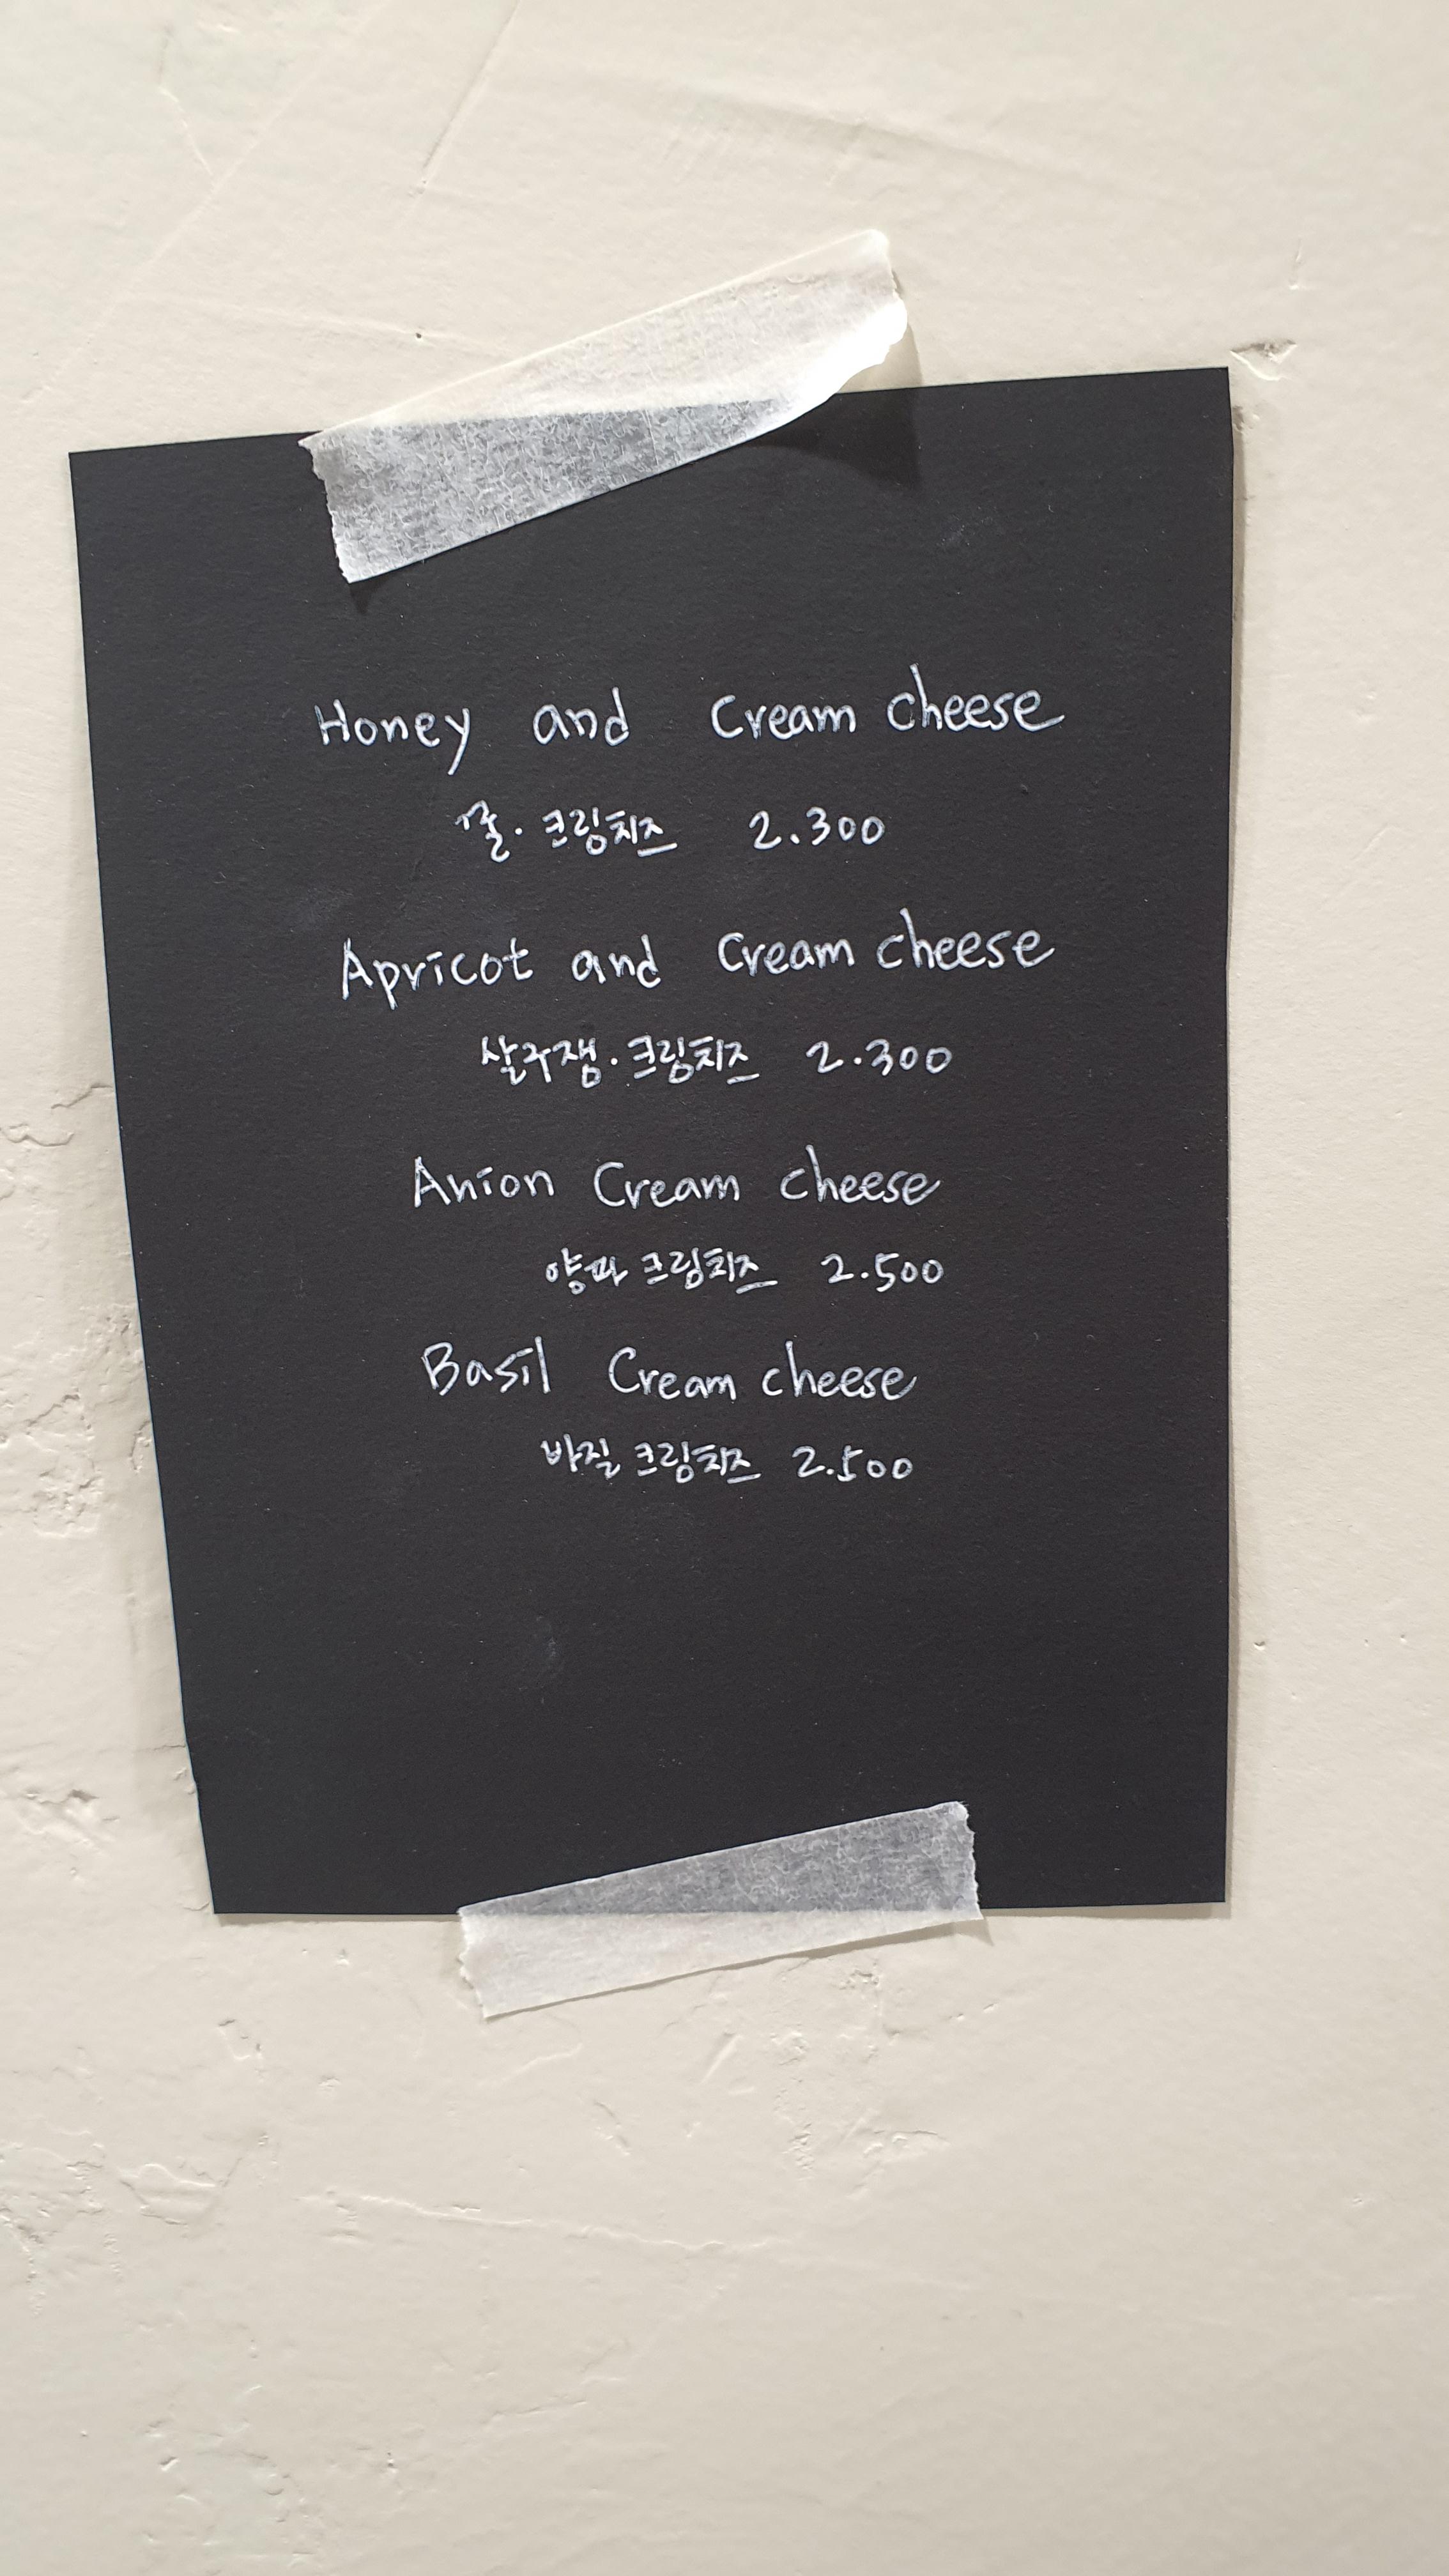 Honey and Cream cheese
꿀·크림치즈 2.300
Apricot and Cream cheese
살구잼·크림치즈 2.300
Anion Cream cheese
양파 크림치즈 2.500
Basil Cream cheese
바질 크림치즈 2.500